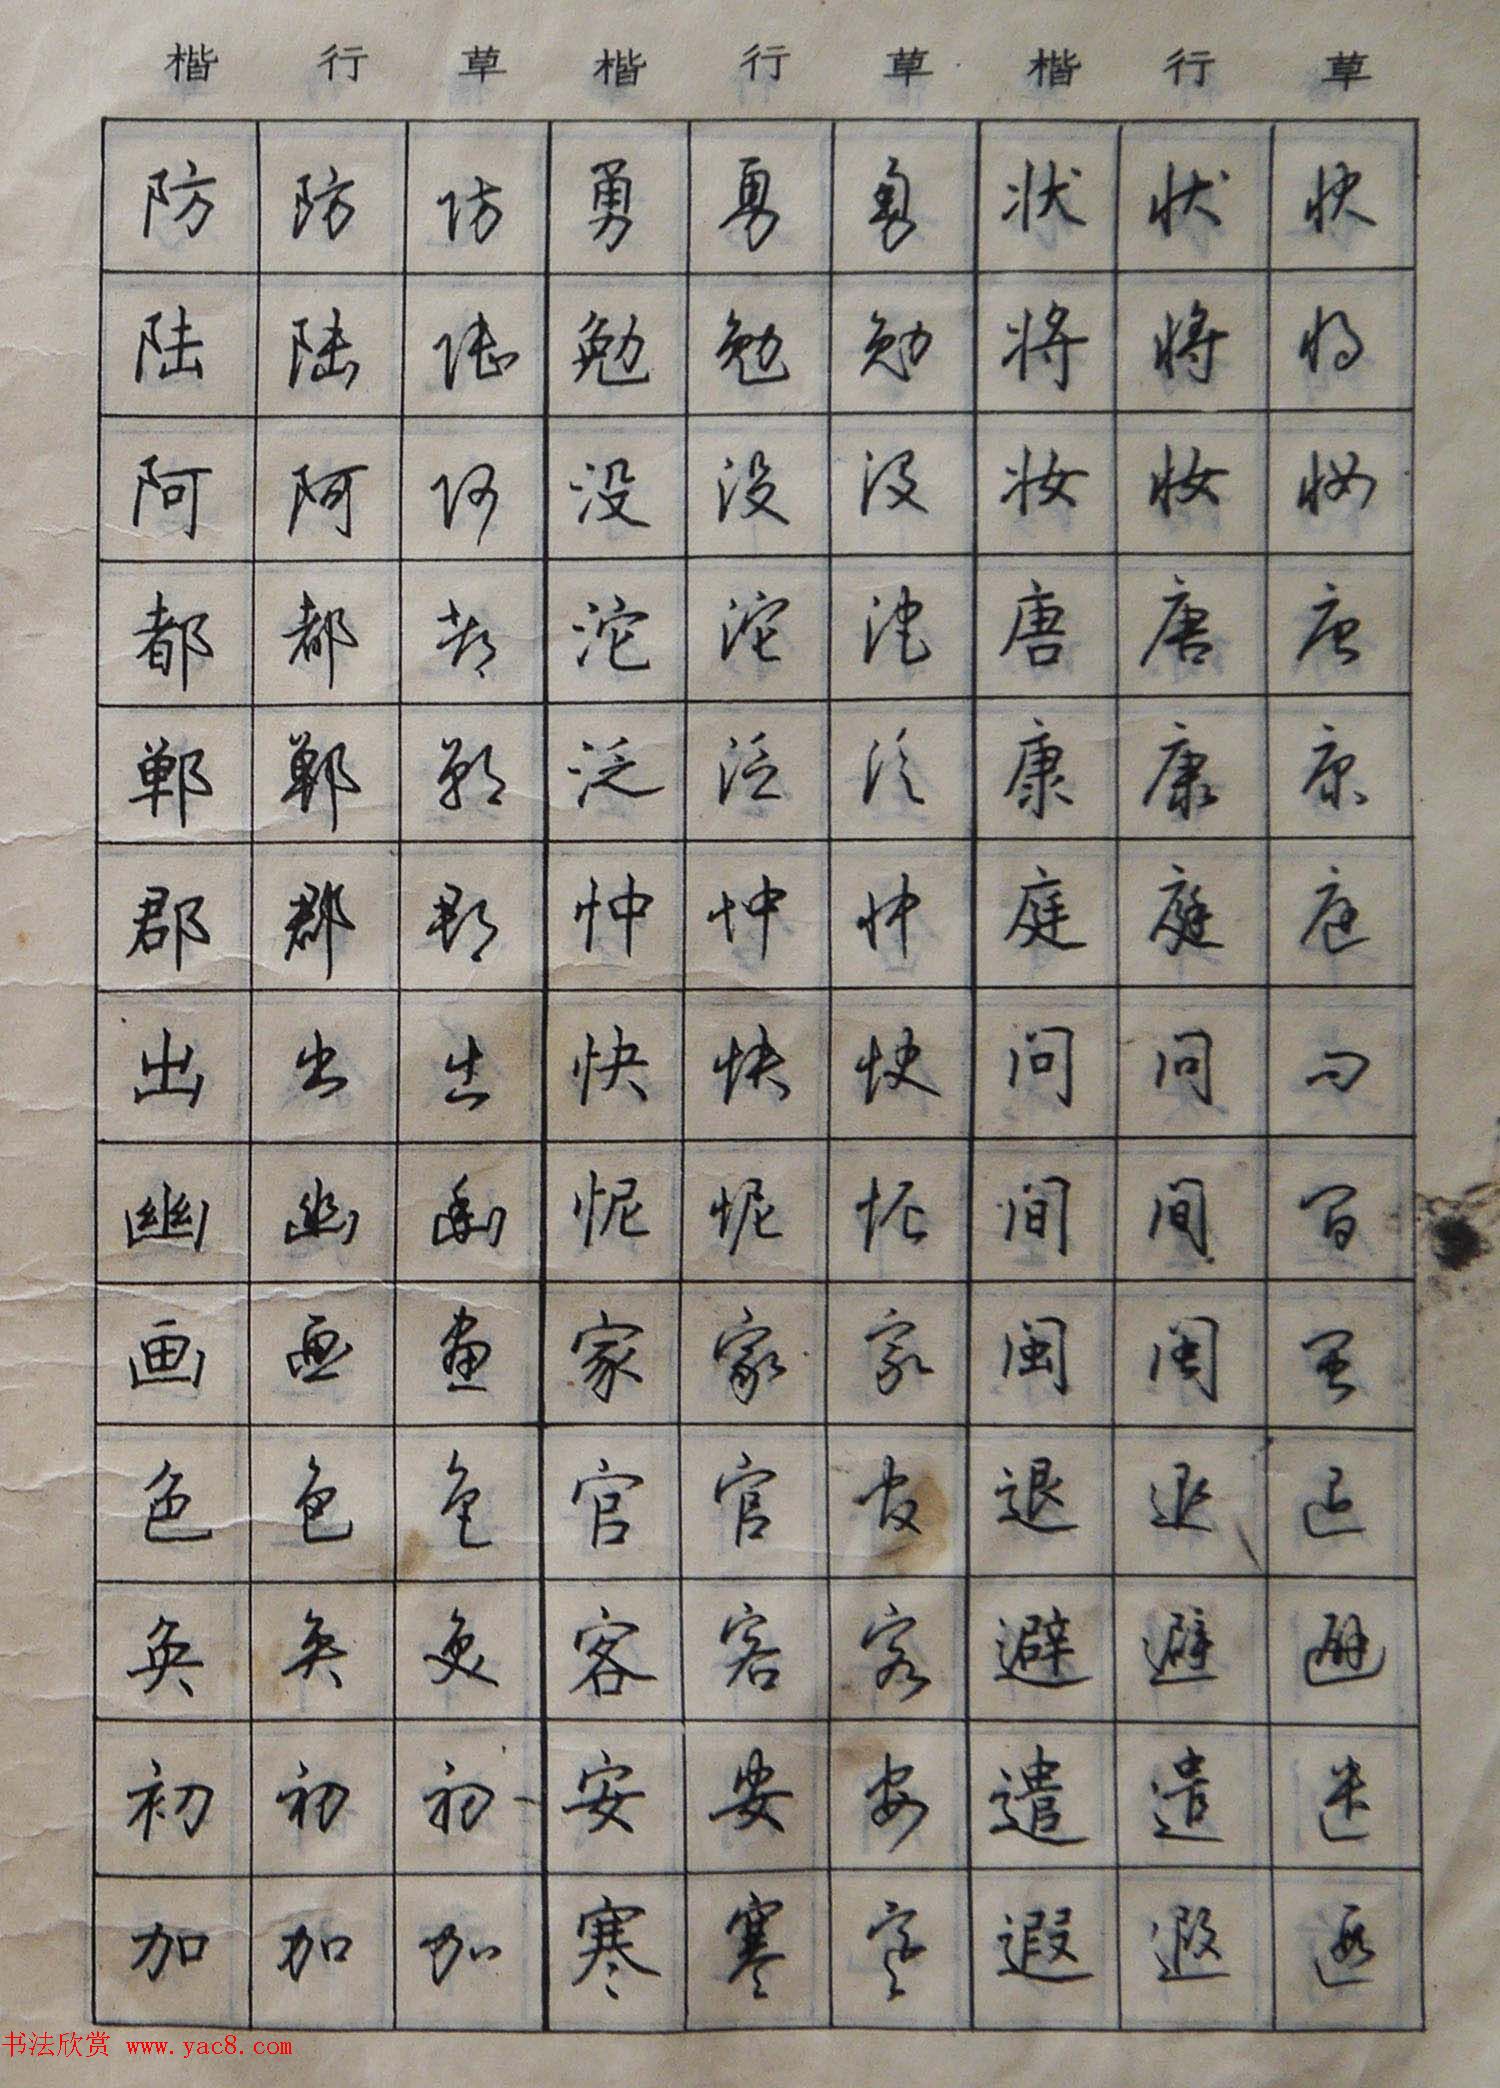 楷 行 草 楷 行 草 楷 行 草
防 防 防 勇 勇 勇 状 状 状
陆 陆 陆 勉 勉 勉 将 将 将
阿 阿 阿 没 没 没 妆 妆 妆
都 都 都 沱 沱 沱 唐 唐 唐
郸 郸 郸 泛 泛 泛 康 康 康
郡 郡 郡 忡 忡 忡 庭 庭 庭
出 出 出 快 快 快 问 问 问
幽 幽 幽 怩 怩 怩 间 间 间
画 画 画 家 家 家 闽 闽 闽
色 色 色 官 官 官 退 退 退
奂 奂 奂 客 客 客 避 避 避
初 初 初 安 安 安 遣 遣 遣
加 加 加 寒 寒 寒 遐 遐 遐
书法欣赏 www.yac8.com